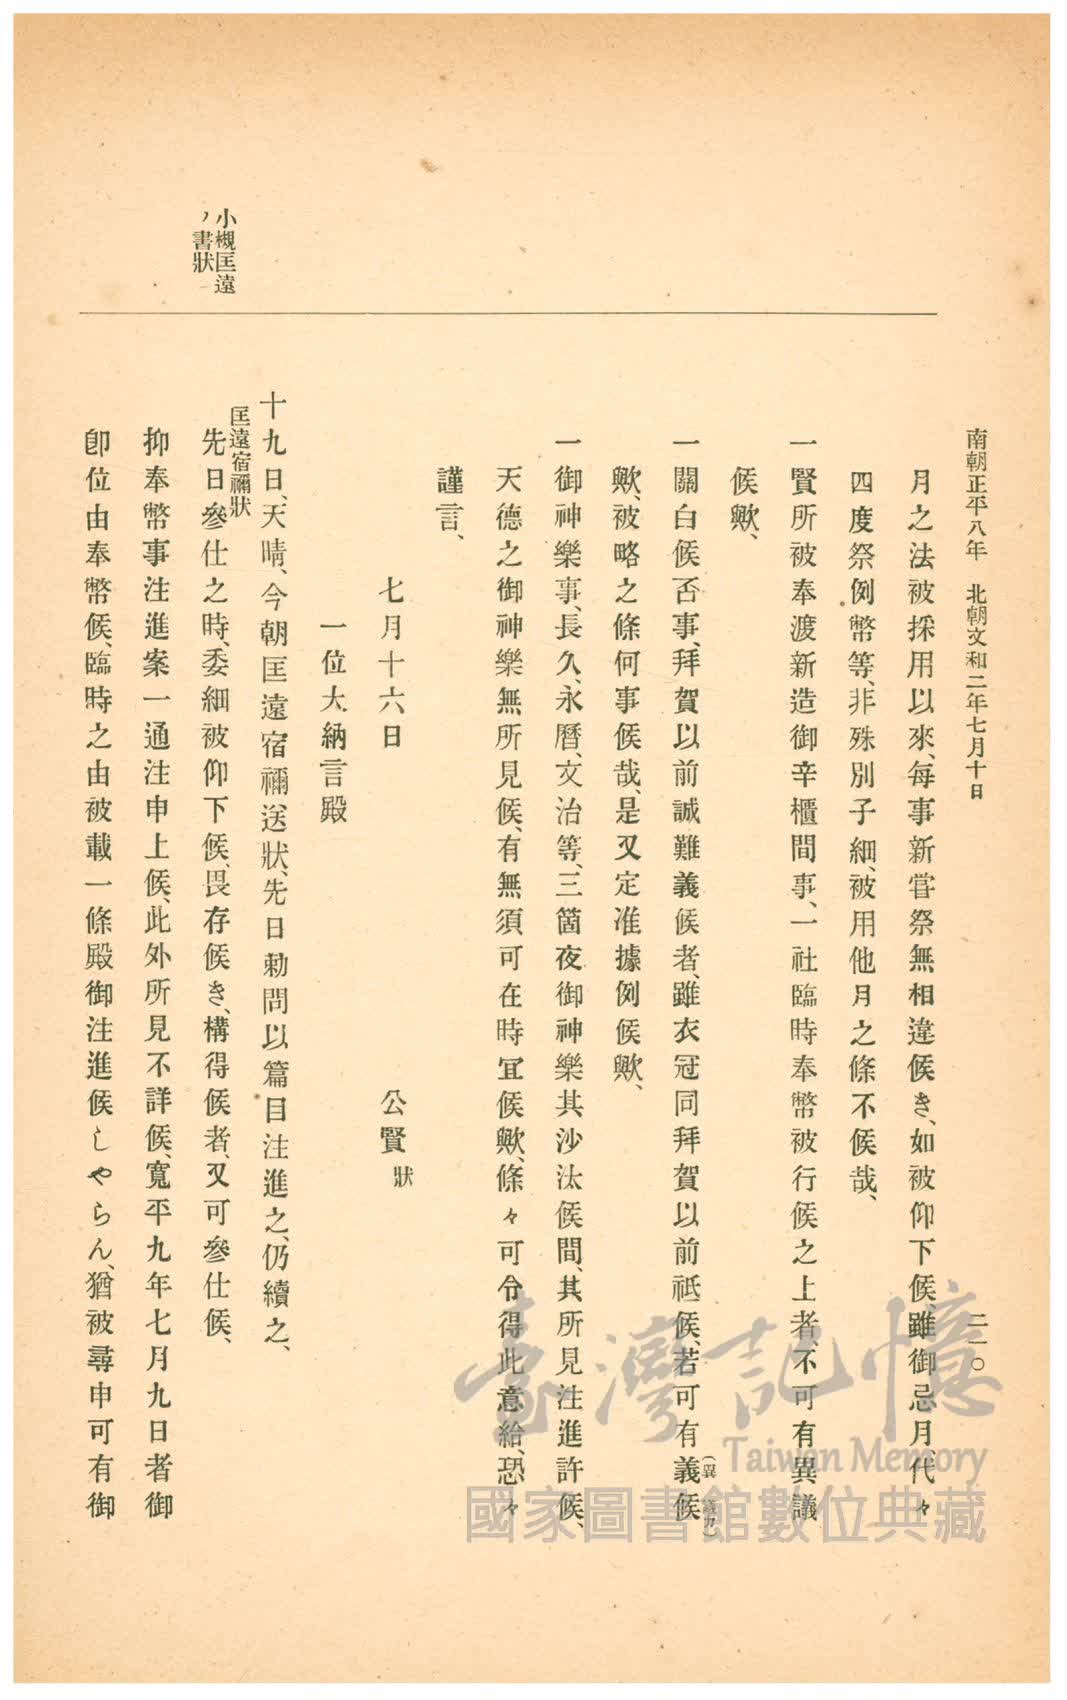 南朝正平八年 北朝文和二年七月十日
二一〇
月之法被採用以來、每事新嘗祭無相違候き、如被仰下候雖御忌月、代々
四度祭例幣等、非殊別子細、被用他月之條不候哉、
一賢所被奉渡新造御辛櫃間事、一社臨時奉幣被行候之上者、不可有異議
候歟、
一關白候否事、拜賀以前誠難義候者、雖衣冠同拜賀以前祇候、若可有義候
(異議カ)
歟、被略之條何事候哉、是又定准據例候歟、
一御神樂事、長久、永曆、文治等、三箇夜御神樂其沙汰候間、其所見注進許候、
天德之御神樂無所見候、有無須可在時宜候歟、條々可令得此意給、恐々
謹言、
七月十六日 公賢狀
一位大納言殿
十九日、天晴、今朝匡遠宿禰送狀、先日勅問以篇目注進之、仍續之、
小槻匡遠
ノ書狀
匡遠宿禰狀
先日參仕之時、委細被仰下候、畏存候き、構得候者、又可參仕候、
抑奉幣事注進案一通注申上候、此外所見不詳候、寬平九年七月九日者御
卽位由奉幣候、臨時之由被載一條殿御注進候しやらん、猶被尋申可有御
臺灣記憶
Taiwan Memory
國家圖書館數位典藏